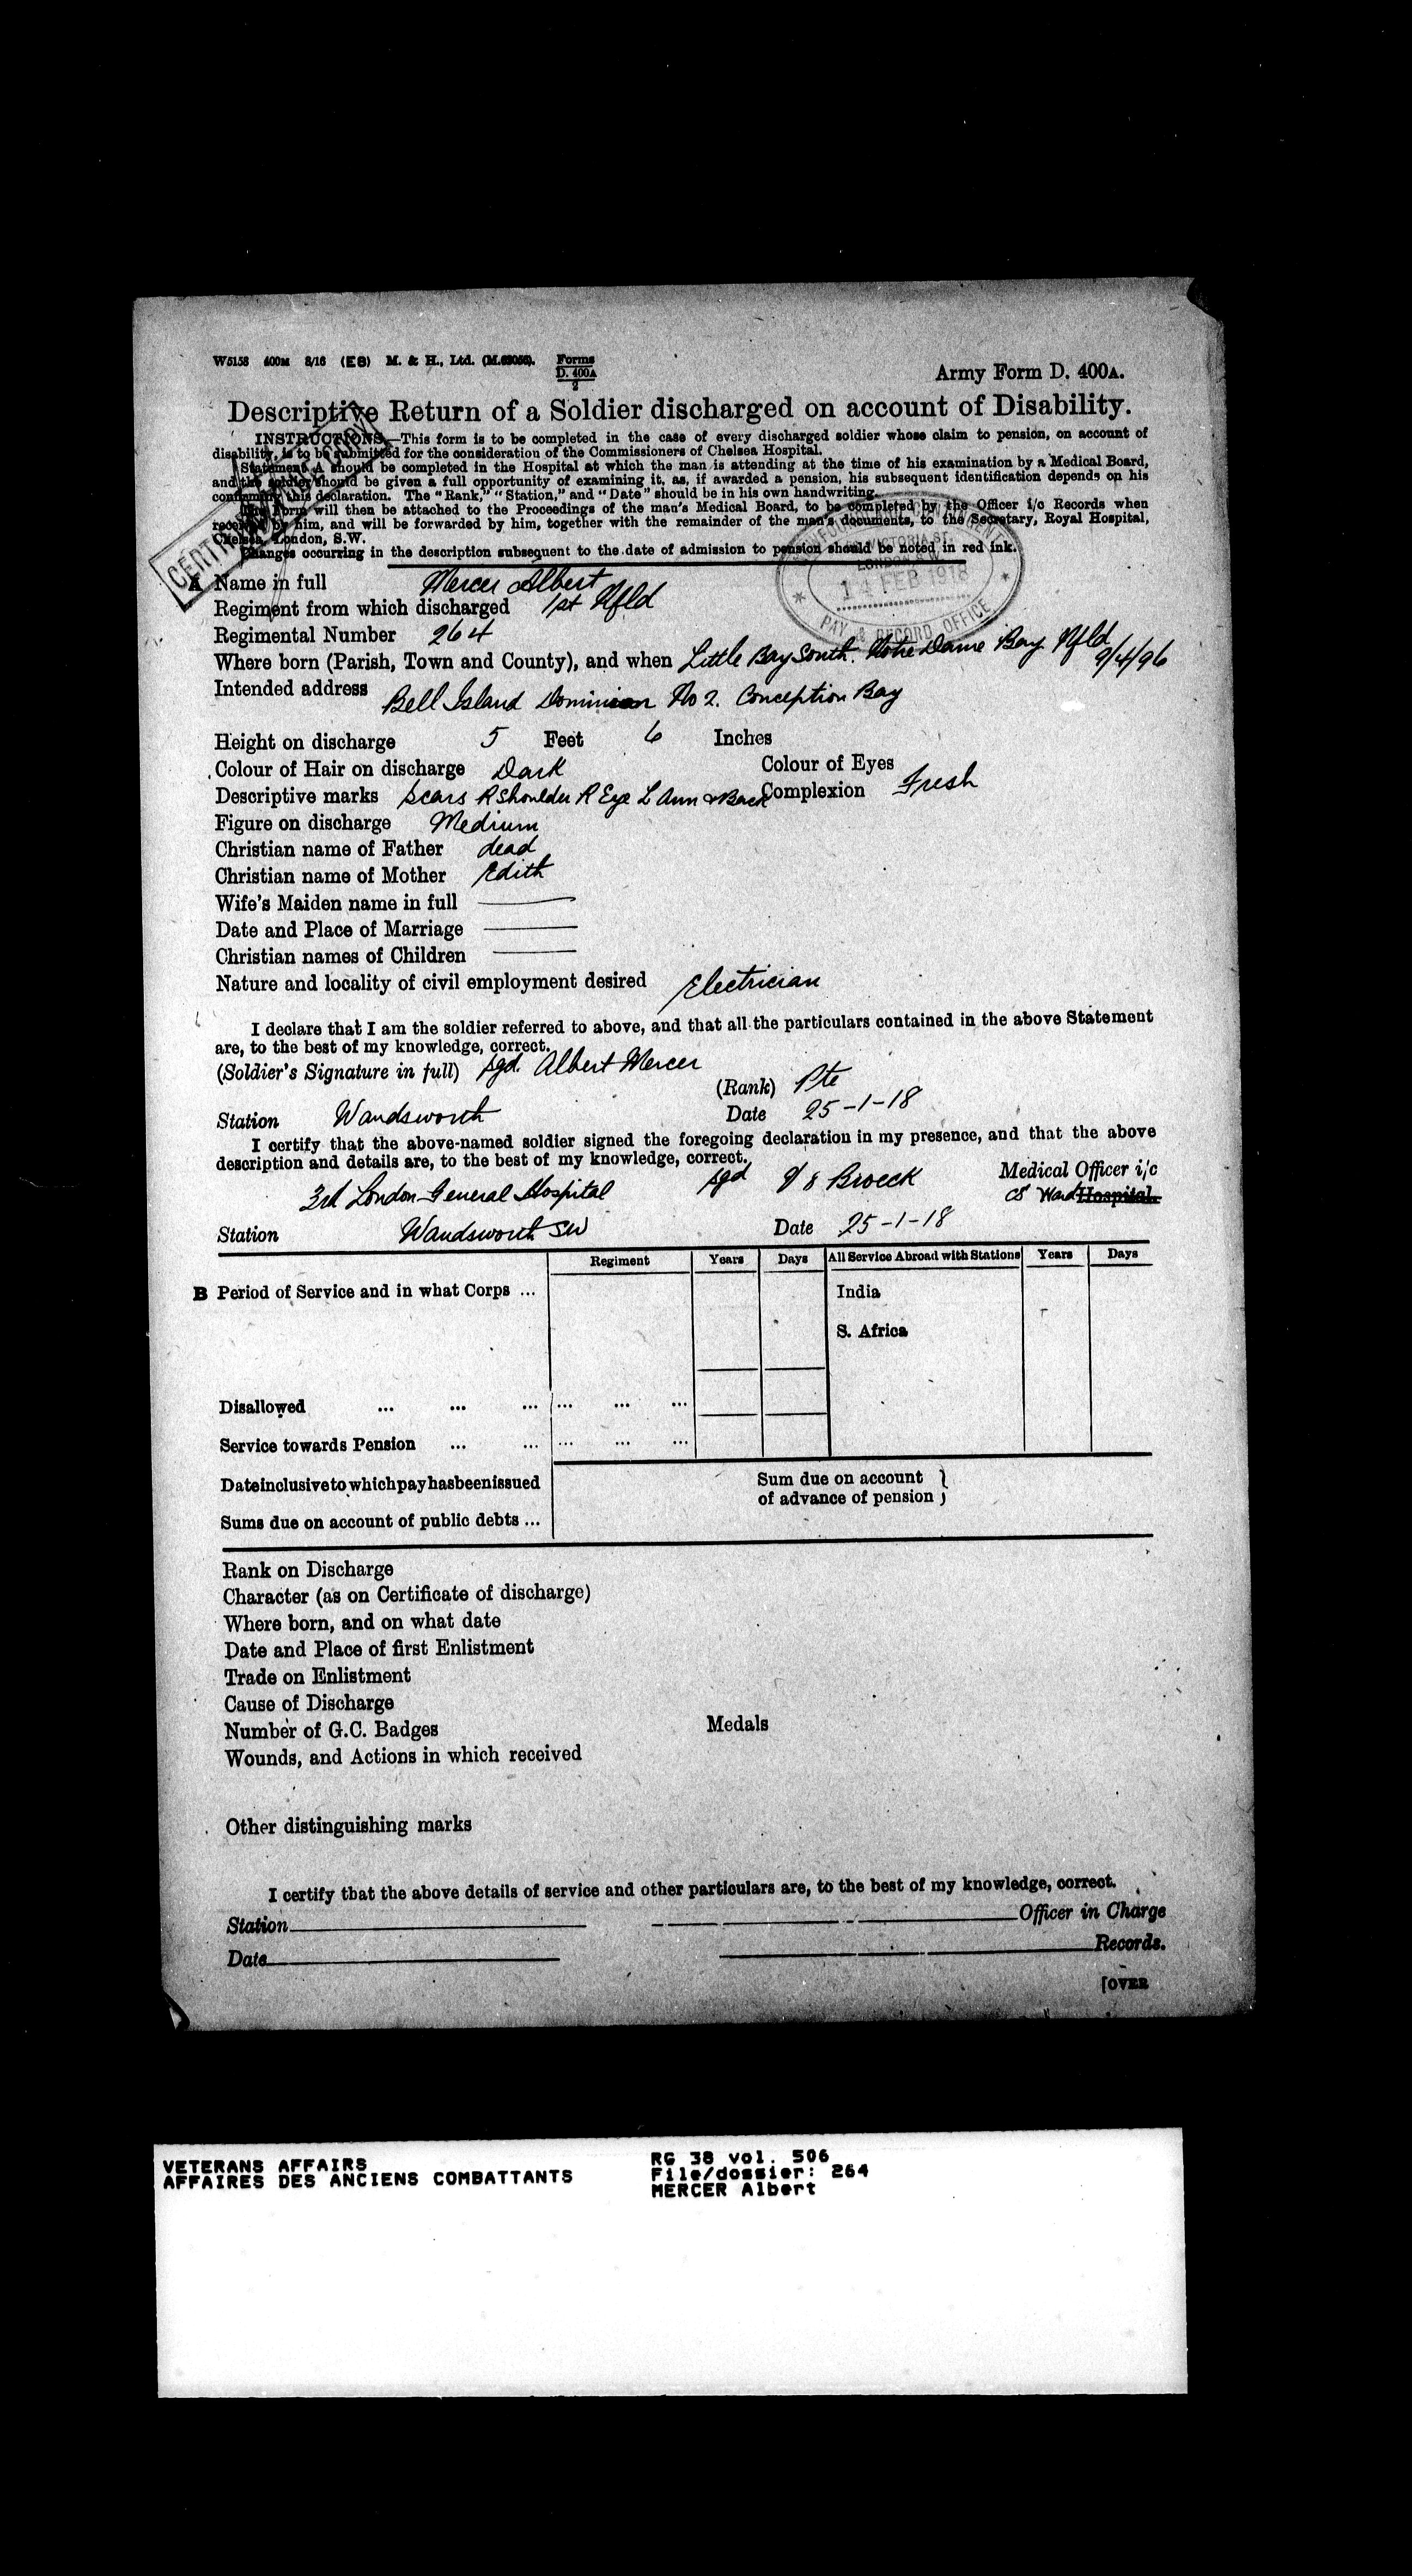 W5158 400M 8/16 (E8) M. & H., Ltd. Forms D. 400A 2
Army Form D. 400A.
Descriptive Return of a Soldier discharged on account of Disability.
INSTRUCTIONS.—This form is to be completed in the case of every discharged soldier whose claim to pension, on account of
disability, is to be submitted for the consideration of the Commissioners of Chelsea Hospital.
Statement A should be completed in the Hospital at which the man is attending at the time of his examination by a Medical Board,
and the soldier should be given a full opportunity of examining it, as, if awarded a pension, his subsequent identification depends on his
confirming this declaration. The "Rank," "Station," and "Date" should be in his own handwriting.
The Form will then be attached to the Proceedings of the man's Medical Board, to be completed by the Officer i/c Records when
received by him, and will be forwarded by him, together with the remainder of the man's documents, to the Secretary, Royal Hospital,
Chelsea, London, S.W.
Changes occurring in the description subsequent to the date of admission to pension should be noted in red ink.
CERTIFIED TRUE COPY
NEWFOUNDLAND CONTINGENT
VICTORIA ST.
LONDON S.W.
14 FEB 1918
PAY & RECORD OFFICE
A Name in full Mercer Albert
Regiment from which discharged 1st Nfld
Regimental Number 264
Where born (Parish, Town and County), and when Little Bay South. Notre Dame Bay Nfld 9/4/96
Intended address Bell Island Dominion No 2. Conception Bay
Height on discharge 5 Feet 6 Inches
Colour of Hair on discharge Dark Colour of Eyes
Descriptive marks scars R Shoulder R Eye L Arm & Back Complexion Fresh
Figure on discharge Medium
Christian name of Father dead
Christian name of Mother Edith
Wife's Maiden name in full
Date and Place of Marriage
Christian names of Children
Nature and locality of civil employment desired Electrician
I declare that I am the soldier referred to above, and that all the particulars contained in the above Statement
are, to the best of my knowledge, correct.
(Soldier's Signature in full) sgd. Albert Mercer
(Rank) Pte
Station Wandsworth Date 25-1-18
I certify that the above-named soldier signed the foregoing declaration in my presence, and that the above
description and details are, to the best of my knowledge, correct.
3rd London General Hospital sgd Broeck Medical Officer i/c
Ward Hospital.
Station Wandsworth SW Date 25-1-18
Regiment Years Days All Service Abroad with Stations Years Days
B Period of Service and in what Corps ... India
S. Africa
Disallowed ... ... ... ... ... ...
Service towards Pension ... ... ... ... ...
Date inclusive to which pay has been issued Sum due on account
of advance of pension }
Sums due on account of public debts ...
Rank on Discharge
Character (as on Certificate of discharge)
Where born, and on what date
Date and Place of first Enlistment
Trade on Enlistment
Cause of Discharge
Number of G.C. Badges Medals
Wounds, and Actions in which received
Other distinguishing marks
I certify that the above details of service and other particulars are, to the best of my knowledge, correct.
Station Officer in Charge
Date Records.
[OVER
VETERANS AFFAIRS RG 38 vol. 506
AFFAIRES DES ANCIENS COMBATTANTS File/dossier: 264
MERCER Albert